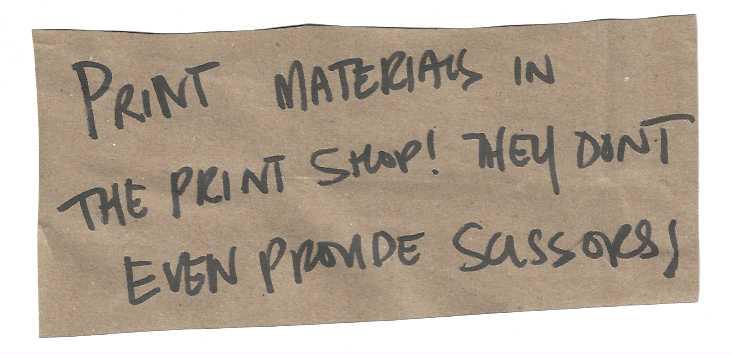 PRINT MATERIALS IN
THE PRINT SHOP! THEY DONT
EVEN PROVIDE SCISSORS!